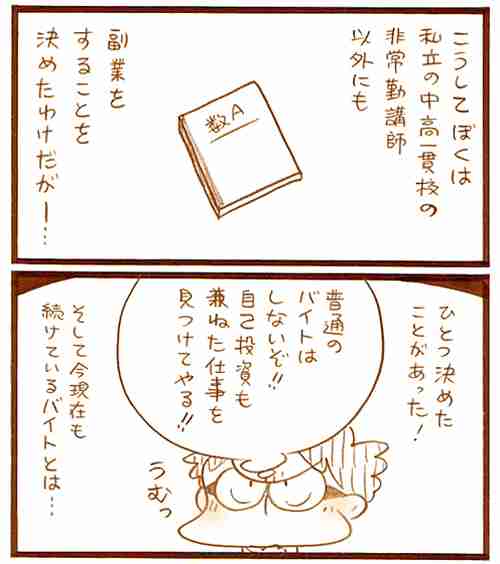 こうしてぼくは
私立の中高一貫校の
非常勤講師
以外にも
数A
副業を
することを
決めたわけだがー…
ひとつ決めた
ことがあった!
普通の
バイトは
しないぞ!!
自己投資も
兼ねた仕事を
見つけてやる!!
うむっ
そして今現在も
続けているバイトとは…